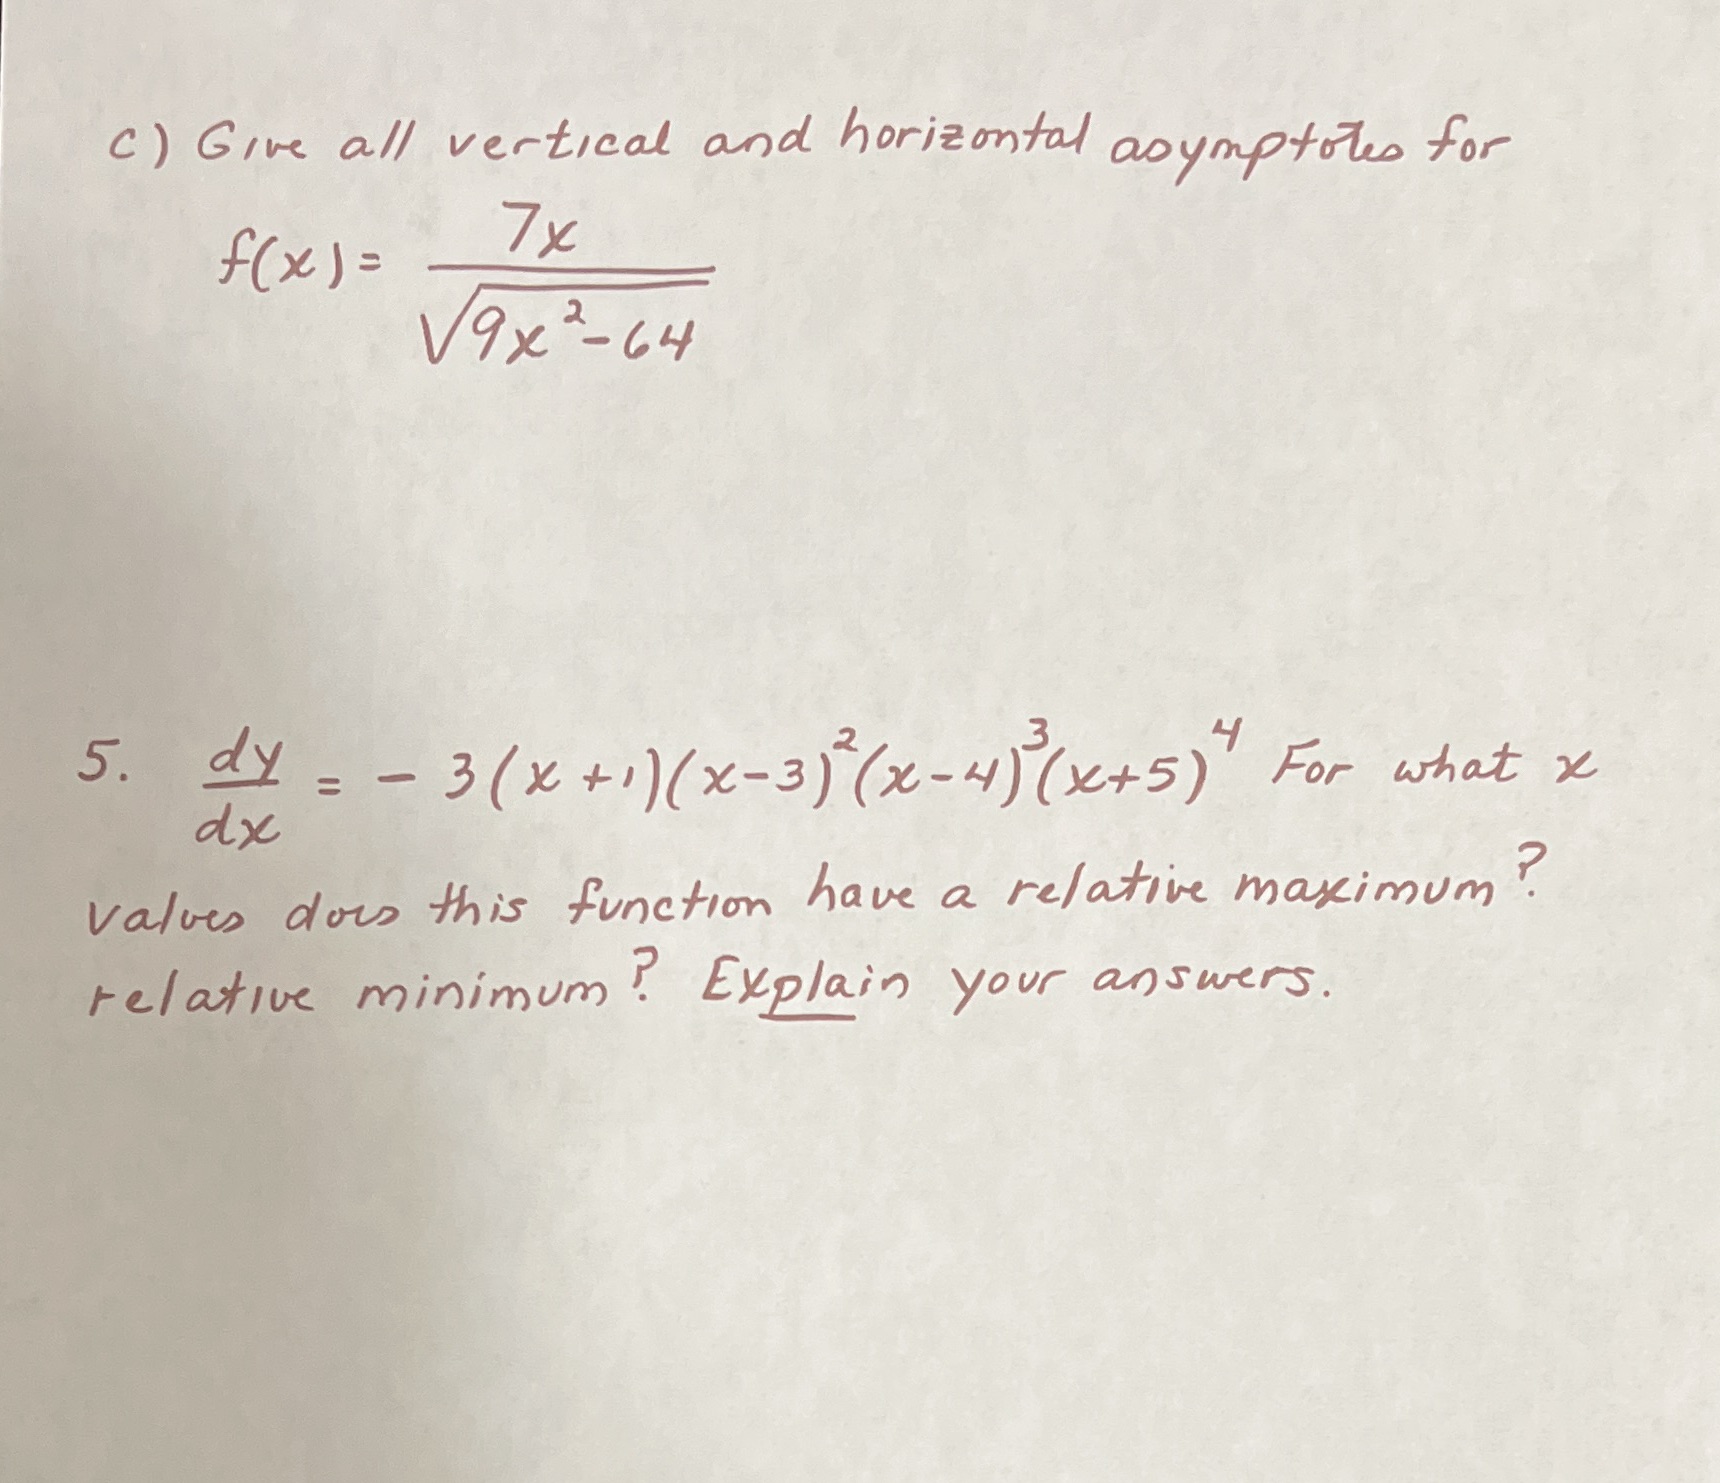 c) Give all vertical and horizontal asymptotes for
f(x) = 7x / √(9x² - 64)
5. dy/dx = - 3(x+1)(x-3)²(x-4)³(x+5)⁴ For what x
values does this function have a relative maximum?
relative minimum? Explain your answers.